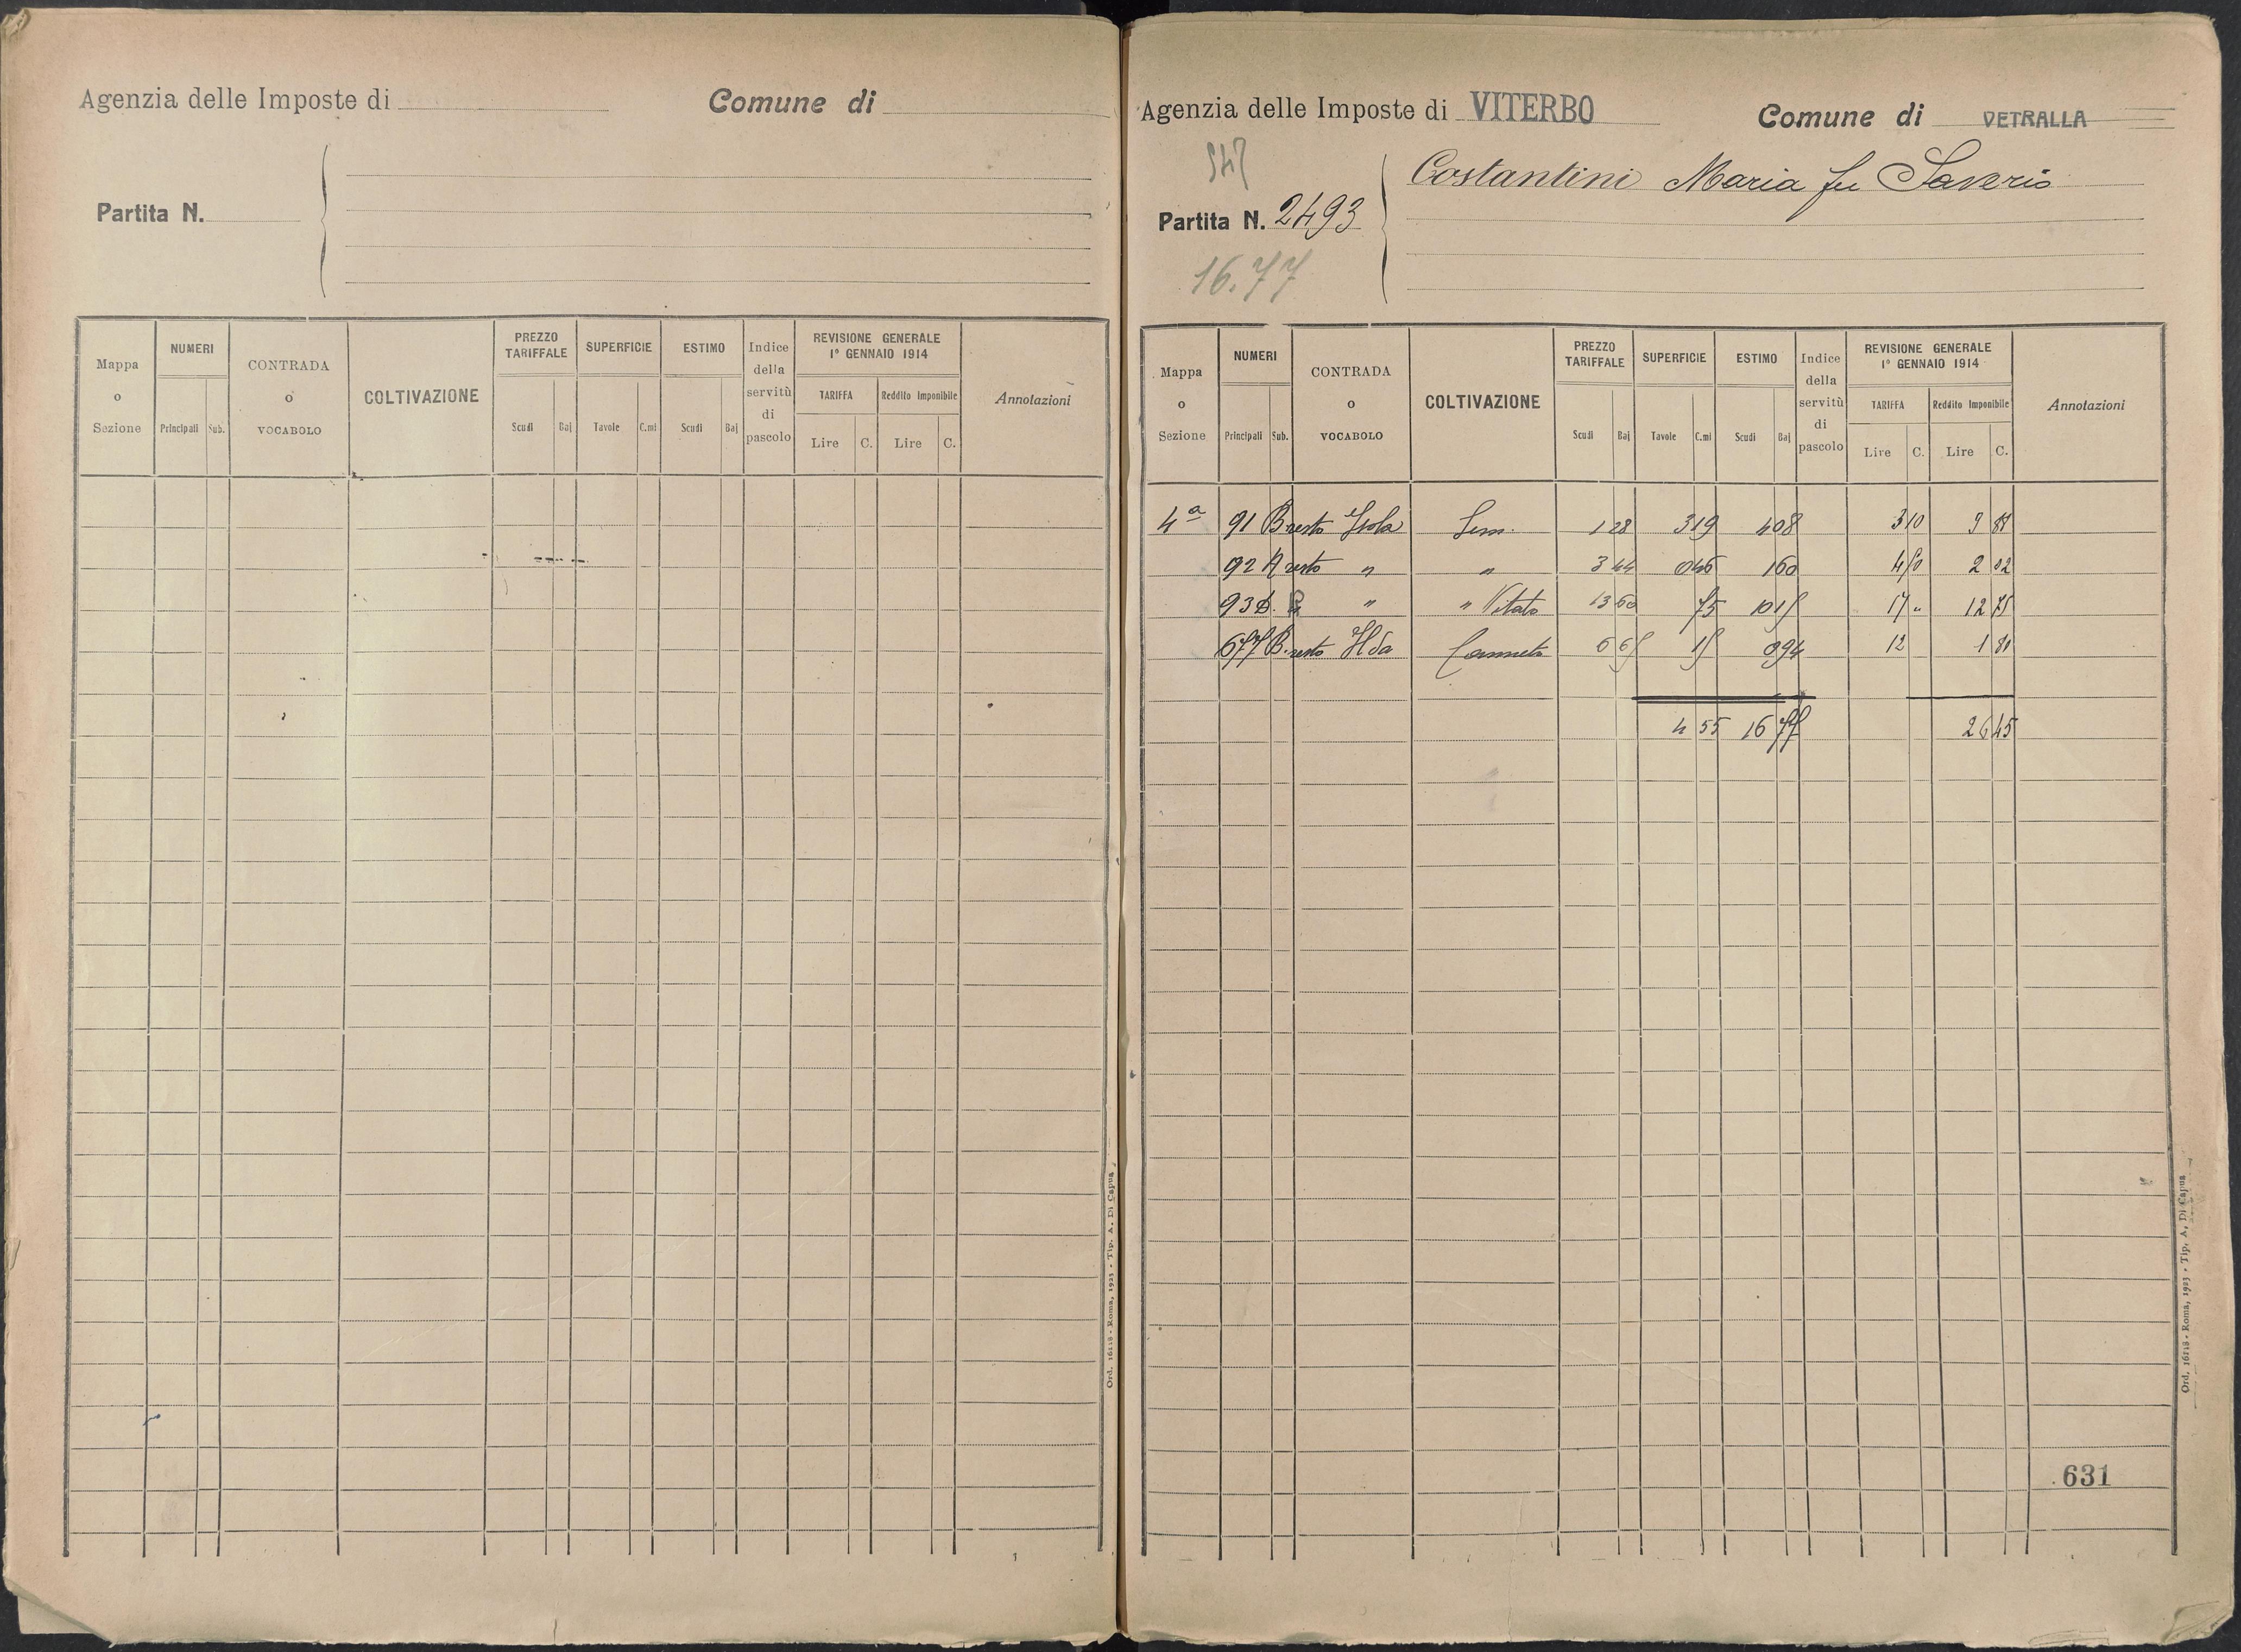 Agenzia delle Imposte di
Comune di
Partita N.
Mappa o Sezione
NUMERI
Principali Sub.
CONTRADA o VOCABOLO
COLTIVAZIONE
PREZZO TARIFFALE
Scudi Baj
SUPERFICIE
Tavole C.mi
ESTIMO
Scudi Baj
Indice della servitù di pascolo
REVISIONE GENERALE 1° GENNAIO 1914
TARIFFA Reddito Imponibile
Lire C. Lire C.
Annotazioni
Ord. 16218 - Roma, 1923 - Tip. A. Di Capua
Agenzia delle Imposte di VITERBO
Comune di VETRALLA
Costantini Maria fu Saverio
Partita N. 2493
16.77
Mappa o Sezione
NUMERI
Principali Sub.
CONTRADA o VOCABOLO
COLTIVAZIONE
PREZZO TARIFFALE
Scudi Baj
SUPERFICIE
Tavole C.mi
ESTIMO
Scudi Baj
Indice della servitù di pascolo
REVISIONE GENERALE 1° GENNAIO 1914
TARIFFA Reddito Imponibile
Lire C. Lire C.
Annotazioni
4a 91 B resto Isola Sem. 1 28 3 19 4 08 3 10 9 89
92 A resto " " 3 44 0 46 1 60 2 02
93 " " Vitato 13 60 75 10 15 17 " 12 75
677 B resto Canneto 15 0 94 12 1 81
4 55 16 77 26 45
631
Ord. 16218 - Roma, 1923 - Tip. A. Di Capua